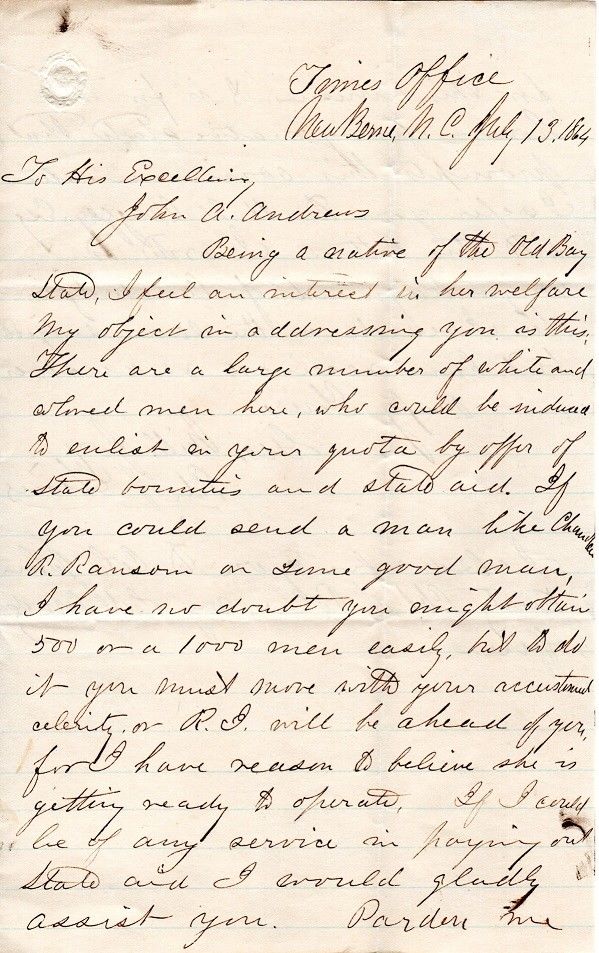 Times Office
New Berne, N. C. July 13. 1864
To His Excellency
John A. Andrews
Being a native of the Old Bay
State, I feel an interest in her welfare
My object in addressing you is this.
There are a large number of white and
colored men here, who could be induced
to enlist in your quota by offer of
State bounties and state aid. If
you could send a man like Chandler
R. Ransom or some good man,
I have no doubt you might obtain
500 or a 1000 men easily, but to do
it you must move with your accustomed
celerity, or R. I. will be ahead of you,
for I have reason to believe she is
getting ready to operate. If I could
be of any service in paying out
State aid I would gladly
assist you. Parden me